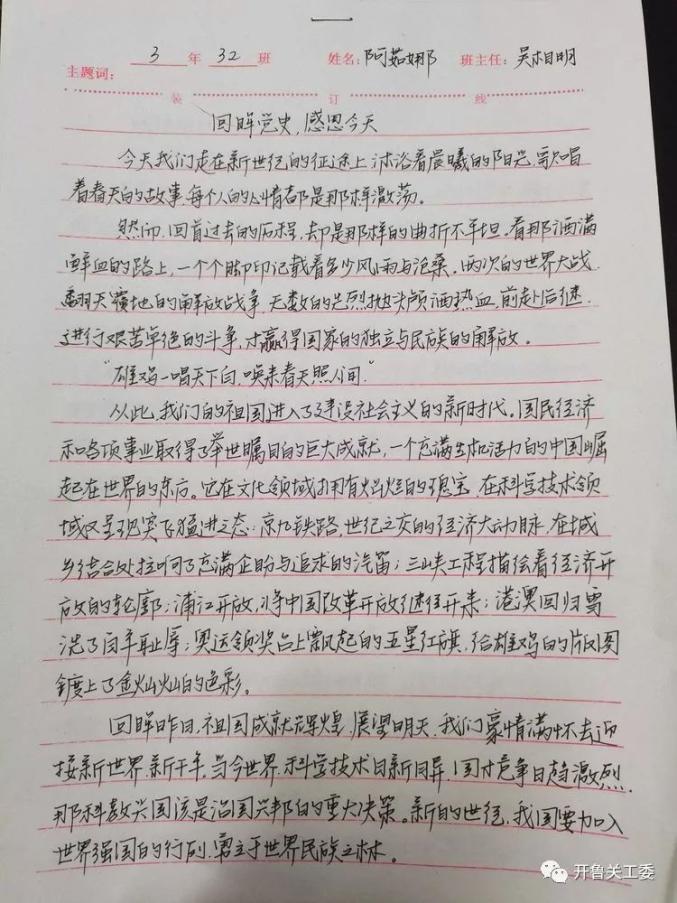 主题词： 3 年 32 班 姓名：阿茹娜 班主任：吴相明
装 订 线
回眸党史，感恩今天
今天我们走在新世纪的征途上，沐浴着晨曦的阳光，歌唱
着春天的故事，每个人的心情都是那样激荡。
然而，回首过去的历程，却是那样的曲折不平坦，看那洒满
鲜血的路上，一个个脚印记载着多少风雨与沧桑。两次的世界大战，
翻天覆地的解放战争，无数的先烈抛头颅洒热血，前赴后继，
进行艰苦卓绝的斗争，才赢得国家的独立与民族的解放。
“雄鸡一唱天下白，唤来春天照人间。”
从此，我们的祖国进入了建设社会主义的新时代。国民经济
和各项事业取得了举世瞩目的巨大成就，一个充满生机活力的中国崛
起在世界的东方。它在文化领域拥有灿烂的瑰宝，在科学技术领
域又呈现突飞猛进之态：京九铁路，世纪之交的经济大动脉，在城
乡结合处拉响了充满企盼与追求的汽笛；三峡工程描绘着经济开
放的轮廓；浦江开放，将中国改革开放继往开来；港澳回归雪
洗了百年耻辱；奥运领奖台上飘起的五星红旗，给雄鸡的版图
镀上了金灿灿的色彩。
回眸昨日，祖国成就辉煌，展望明天，我们豪情满怀去迎
接新世界、新千年，当今世界，科学技术日新月异，国才竞争日趋激烈，
那科教兴国该是治国兴邦的重大决策。新的世纪，我国要加入
世界强国的行列，勇立于世界民族之林。
开鲁关工委